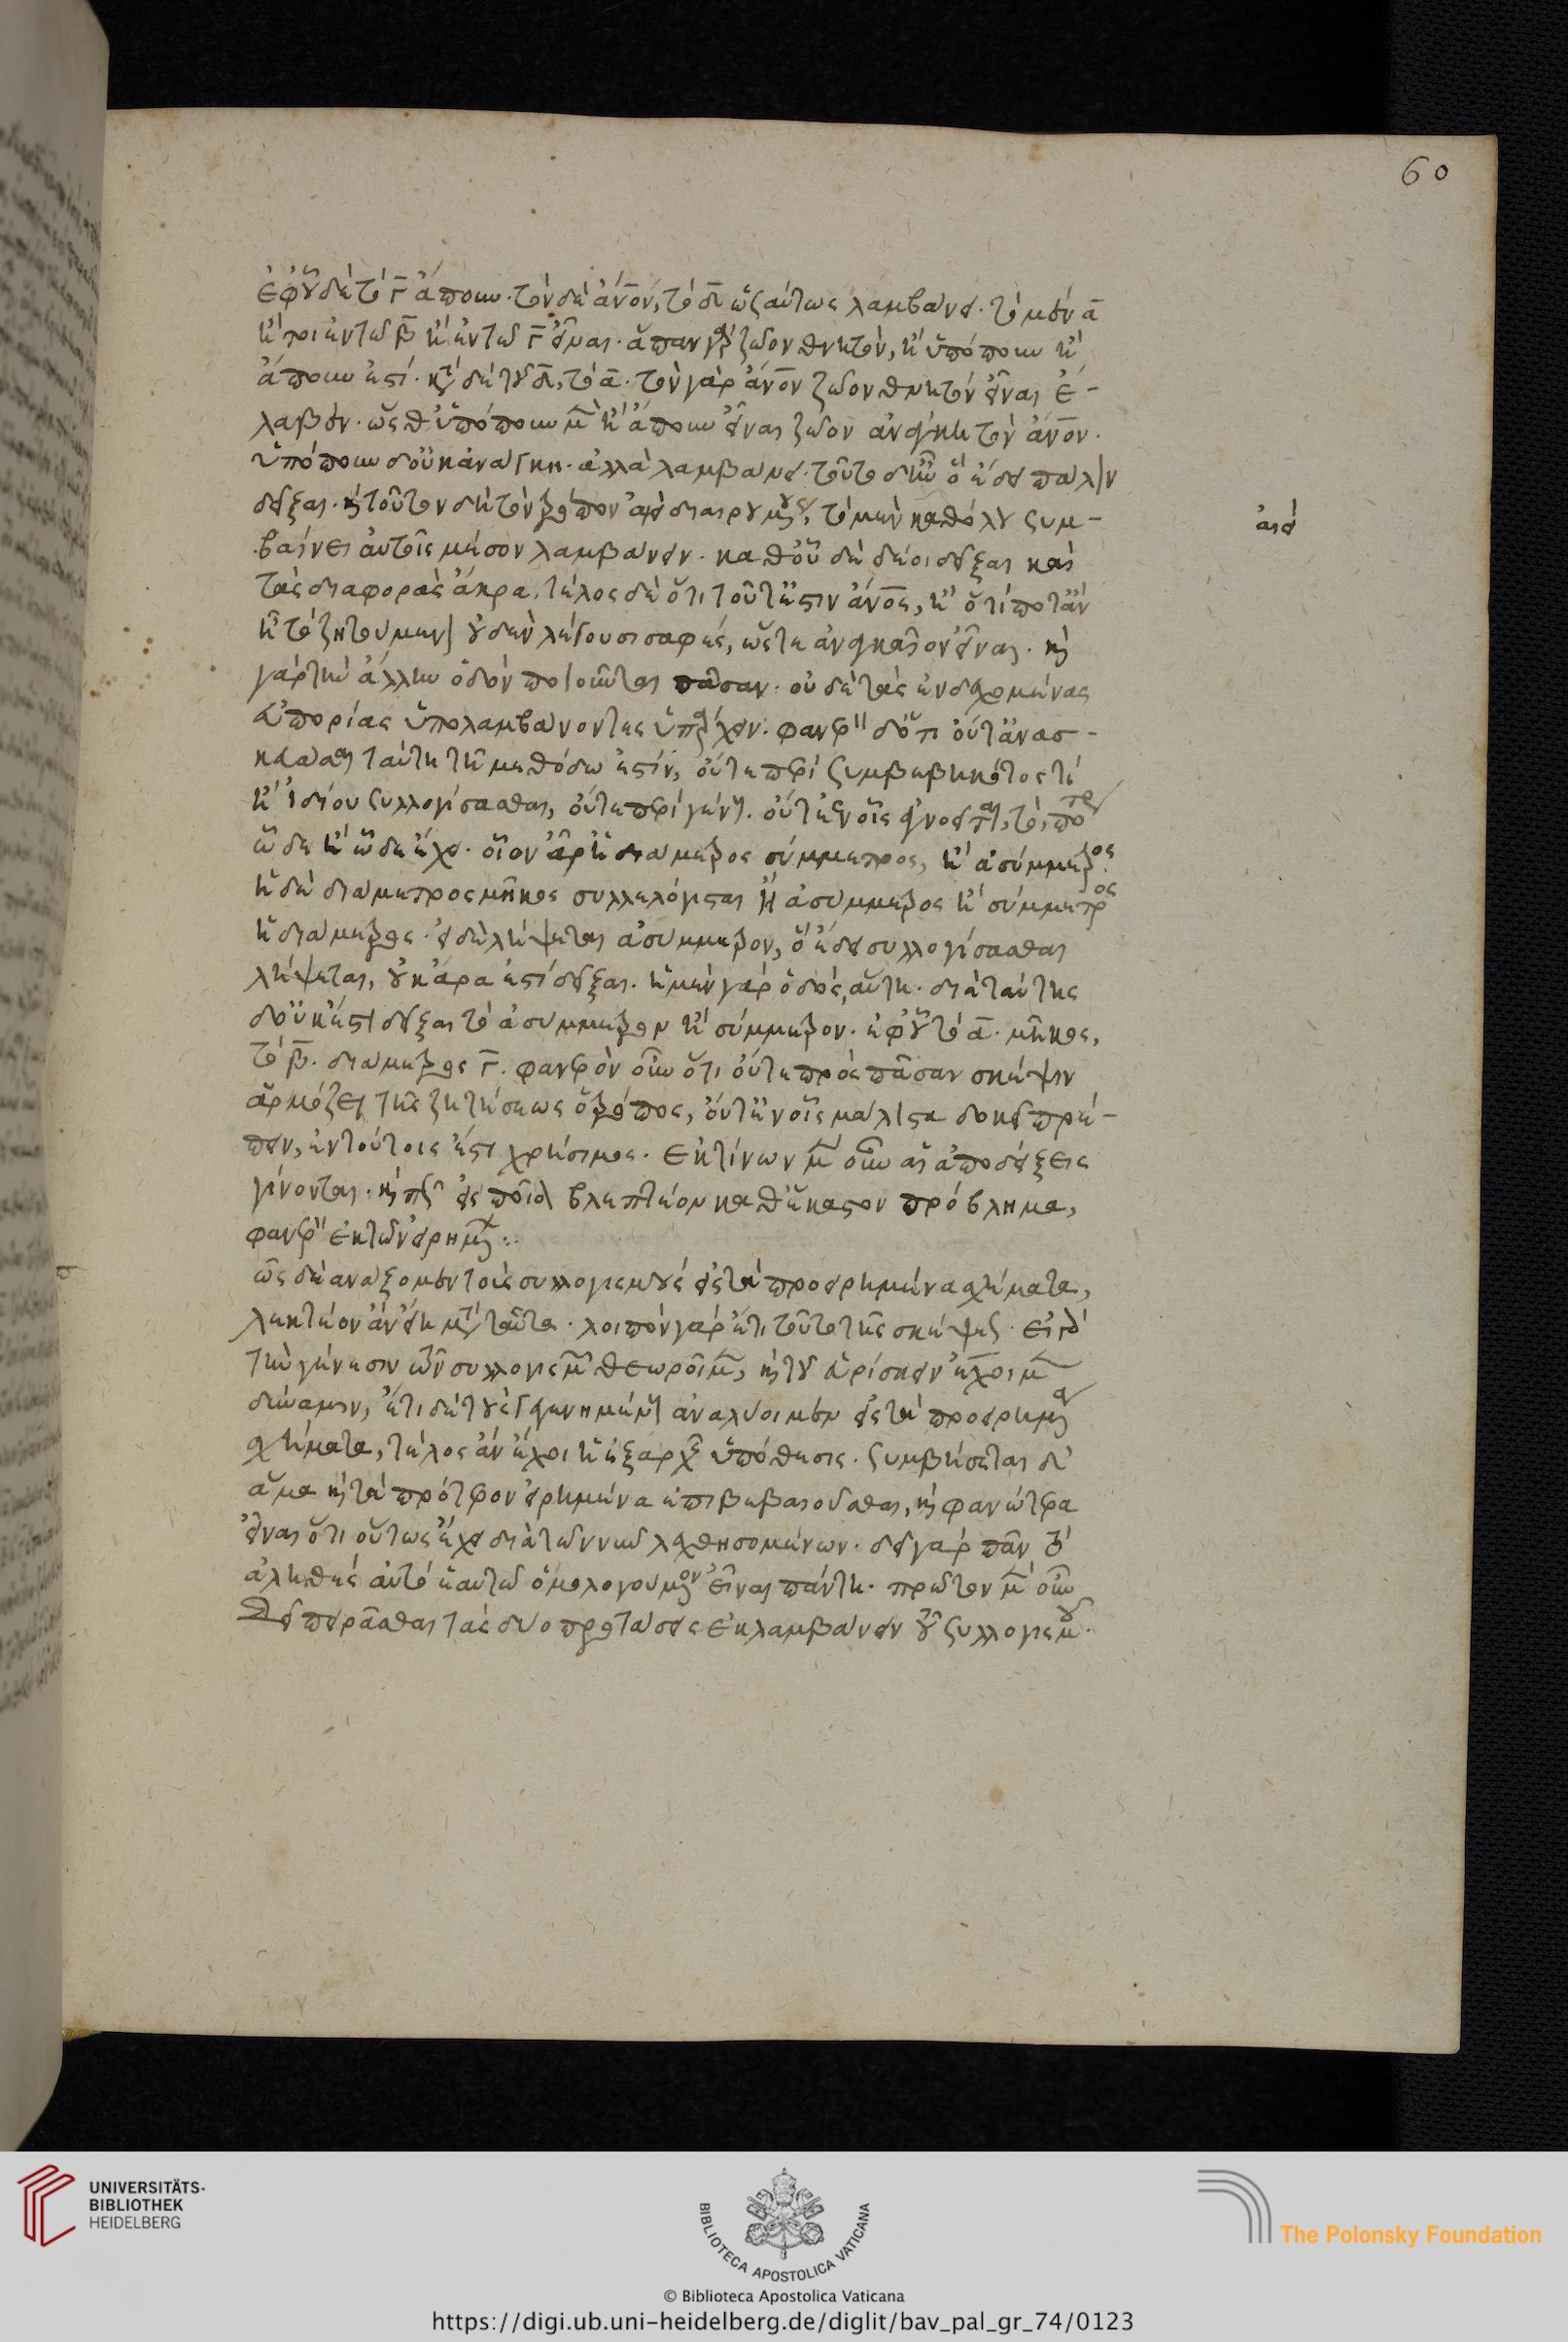 ἐφ' οὗ δὲ τὸ γ̄ ἄπουν. τὸν δὲ ἄν̅ον, τὸ δ̄ ὡσαύτως λαμβάνει. τὸ μὲν ᾱ
ἢ περὶ ἐν τῷ β̄ ἢ ἐν τῷ γ̄ εἶναι. ἅπαν γὰρ ζῶον θνητὸν, ἢ ὑπόπουν ἢ
ἄπουν ἐστί. κατὰ δὲ τοῦ δ̄, τὸ ᾱ. τὸν γὰρ ἄν̅ον ζῶον θνητὸν εἶναι ἔ-
λαβεν. ὥσθ' ὑπόπουν μὲν ἢ ἄπουν εἶναι ζῶον ἀνάγκη τὸν ἄν̅ον.
ὑπόπουν δ' οὐκ ἀνάγκη. ἀλλὰ λαμβάνει. τοῦτο δ' ἦν ὃ ἔδει πάλιν
δεῖξαι. καὶ τοῦτον δὴ τὸν τρόπον ἀεὶ διαιρουμένοις, τὸ μὲν καθόλου συμ-
βαίνει αὐτοῖς μέσον λαμβάνειν. καθ' οὗ δὲ δέοι δεῖξαι καὶ
τὰς διαφορὰς ἄκρα. τέλος δὲ ὅτι τοῦτ' ἔστιν ἄν̅ος, ἢ ὅτι ποτ' ἂν
ἦ τὸ ζητούμενον οὐδὲν λέγουσι σαφές, ὥστε ἀναγκαῖον εἶναι. καὶ
γὰρ τὴν ἄλλην ὁδὸν ποιοῦνται πᾶσαν. οὐδὲ τὰς ἐνδεχομένας
εὐπορίας ὑπολαμβάνοντες ὑπάρχειν. φανερὸν δ' ὅτι οὔτ' ἀνασ-
κευάσαι ταύτη τῆ μεθόδω ἐστίν, οὔτε περὶ συμβεβηκότος τὶ
ἢ ἰδίου συλλογίσασθαι, οὔτε περὶ γένους. οὔτ' ἐν οἷς ἀγνοεῖται, τὸ, πότερ
ὧδε ἢ ὧδε ἔχει. οἷον ἆρ' ἡ διάμετρος σύμμετρος, ἢ ἀσύμμετρος.
ἡ δὲ διάμετρος μῆκος συλλελόγισται ἢ ἀσύμμετρος ἢ σύμμετρος
ἡ διάμετρος. εἰ δὲ λήψεται ἀσύμμετρον, ὃ ἔδει συλλογίσασθαι
λήψεται, οὐκ ἄρα ἐστὶ δεῖξαι. ἡ μὲν γὰρ ὁδὸς, αὕτη. διὰ ταύτης
δ' οὐκ ἔστι δεῖξαι τὸ ἀσύμμετρον ἢ σύμμετρον. ἐφ' οὗ τὸ ᾱ. μῆκος,
τὸ β̄. διάμετρος γ̄. φανερὸν οὖν ὅτι οὔτε πρὸς πᾶσαν σκέψιν
ἁρμόζει τῆς ζητήσεως ὁ τρόπος, οὔτ' ἐν οἷς μάλιστα δοκεῖ πρέ-
πειν, ἐν τούτοις ἐστὶ χρήσιμος. ἐκ τίνων μὲν οὖν αἱ ἀποδείξεις
γίνονται. καὶ πῶς εἰς ποῖα βλεπτέον καθ' ἕκαστον πρόβλημα,
φανερὸν ἐκ τῶν εἰρημένων.
ὡς δὲ ἀνάξομεν τοὺς συλλογισμοὺς εἰς τὰ προειρημένα σχήματα,
λεκτέον ἂν εἴη μετὰ ταῦτα. λοιπὸν γὰρ ἔτι τοῦτο τῆς σκέψεως. εἰ γὰρ
τὴν γένεσιν τῶν συλλογισμῶν θεωροῖμεν, καὶ τοῦ εὑρίσκειν ἔχοιμεν
δύναμιν, ἔτι δὲ τοὺς γεγενημένους ἀναλύοιμεν εἰς τὰ προειρημένα
σχήματα, τέλος ἂν ἔχοι ἡ ἐξ ἀρχῆς ὑπόθεσις. συμβήσεται δ'
ἅμα καὶ τὰ πρότερον εἰρημένα ἐπιβεβαιοῦσθαι, καὶ φανερώτερα
εἶναι ὅτι οὕτως ἔχει διὰ τῶν νῦν λεχθησομένων. δεῖ γὰρ πᾶν τὸ
ἀληθὲς αὐτὸ ἑαυτῷ ὁμολογούμενον εἶναι πάντη. πρῶτον μὲν οὖν
δεῖ πειρᾶσθαι τὰς δύο προτάσεις ἐκλαμβάνειν τοῦ συλλογισμοῦ.
ἀεὶ
60
UNIVERSITÄTS-
BIBLIOTHEK
HEIDELBERG
BIBLIOTECA APOSTOLICA VATICANA
The Polonsky Foundation
© Biblioteca Apostolica Vaticana
https://digi.ub.uni-heidelberg.de/diglit/bav_pal_gr_74/0123